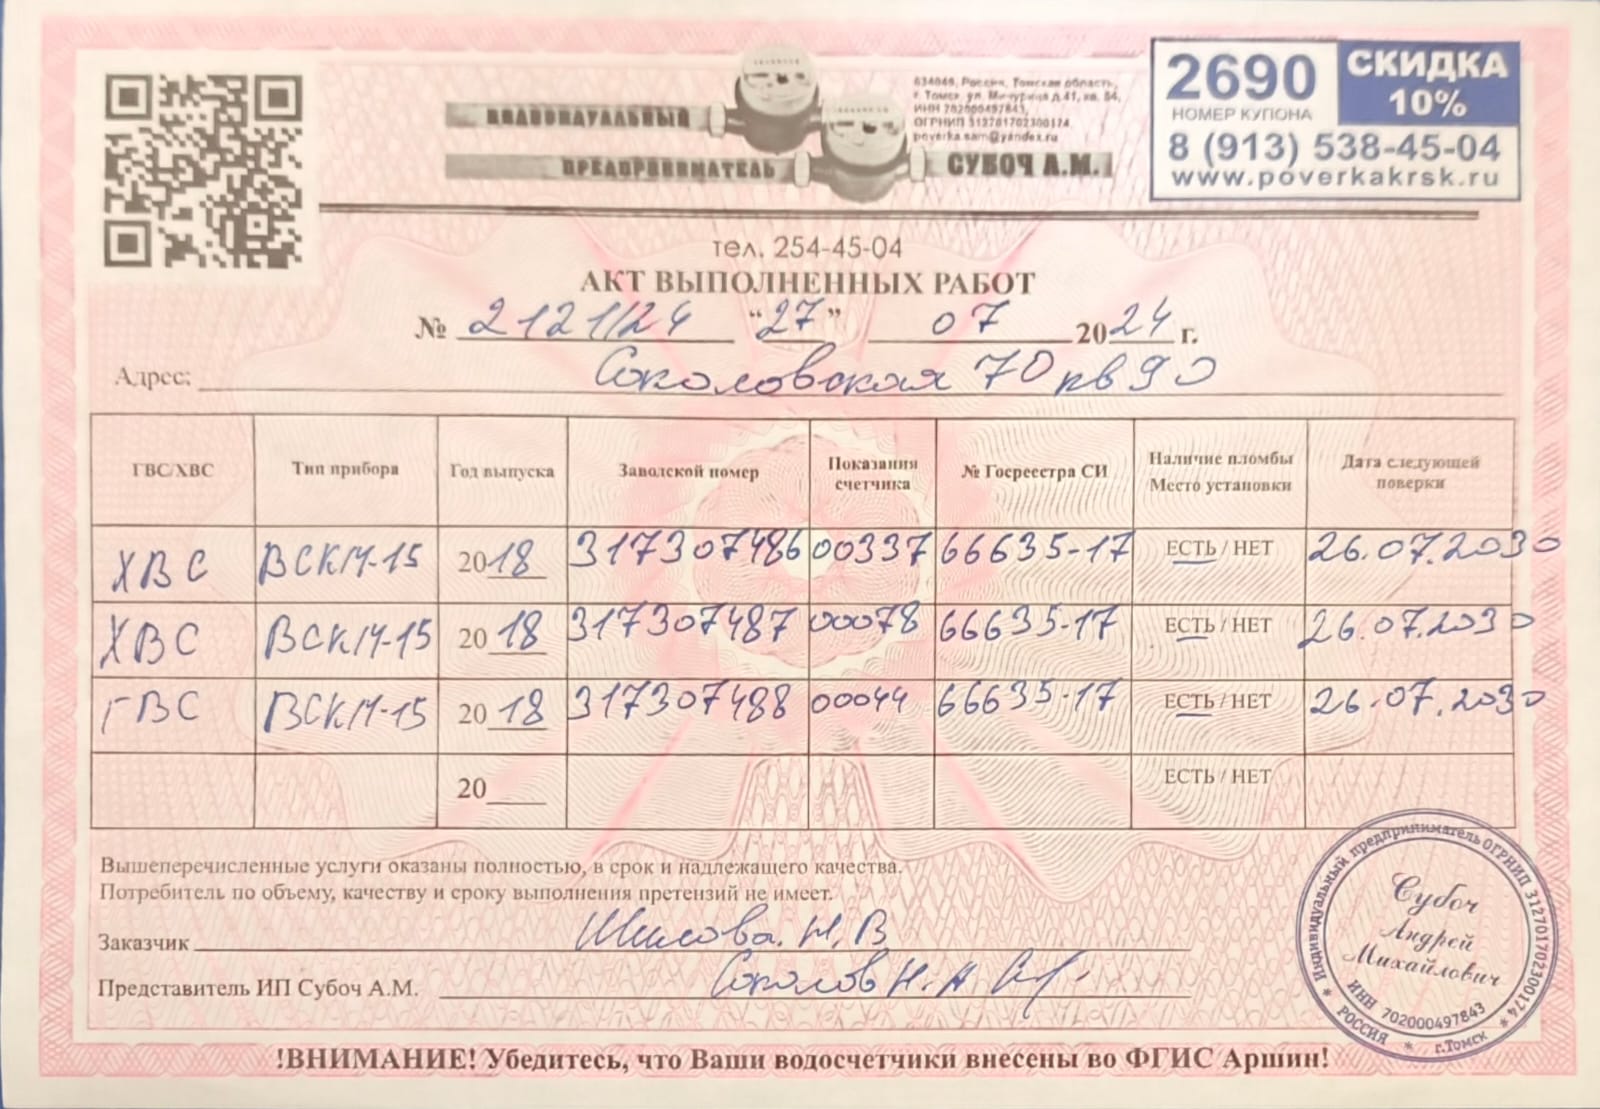 ИНДИВИДУАЛЬНЫЙ
ПРЕДПРИНИМАТЕЛЬ СУБОЧ А.М.
634040, Россия, Томская область,
г. Томск, ул. Мичурина д.41, кв. 84,
ИНН 702000497843,
ОГРНИП 312701702300174
poverka.sam@yandex.ru
2690
НОМЕР КУПОНА
СКИДКА
10%
8 (913) 538-45-04
www.poverkakrsk.ru
тел. 254-45-04
АКТ ВЫПОЛНЕННЫХ РАБОТ
№ 2121/24 "27" 07 2024 г.
Адрес: Соколовская 70 кв 90
ГВС/ХВС Тип прибора Год выпуска Заводской номер Показания счетчика № Госреестра СИ Наличие пломбы Место установки Дата следующей поверки
ХВС ВСКМ-15 2018 317307486 00337 66635-17 ЕСТЬ / НЕТ 26.07.2030
ХВС ВСКМ-15 2018 317307487 00078 66635-17 ЕСТЬ / НЕТ 26.07.2030
ГВС ВСКМ-15 2018 317307488 00044 66635-17 ЕСТЬ / НЕТ 26.07.2030
20 ЕСТЬ / НЕТ
Вышеперечисленные услуги оказаны полностью, в срок и надлежащего качества.
Потребитель по объему, качеству и сроку выполнения претензий не имеет.
Заказчик Шилова. Н, В
Представитель ИП Субоч А.М. Соколов Н. А
Индивидуальный предприниматель ОГРНИП 312701702300174
Субоч
Андрей
Михайлович
ИНН 702000497843
* РОССИЯ * г.Томск *
!ВНИМАНИЕ! Убедитесь, что Ваши водосчетчики внесены во ФГИС Аршин!